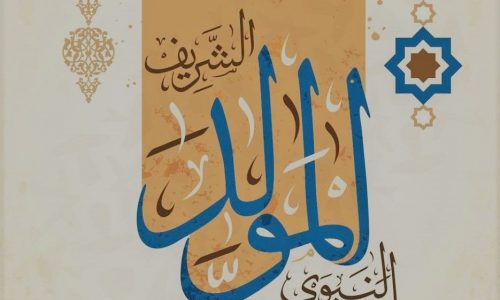 المولد
النبوي
الشَّرِيف